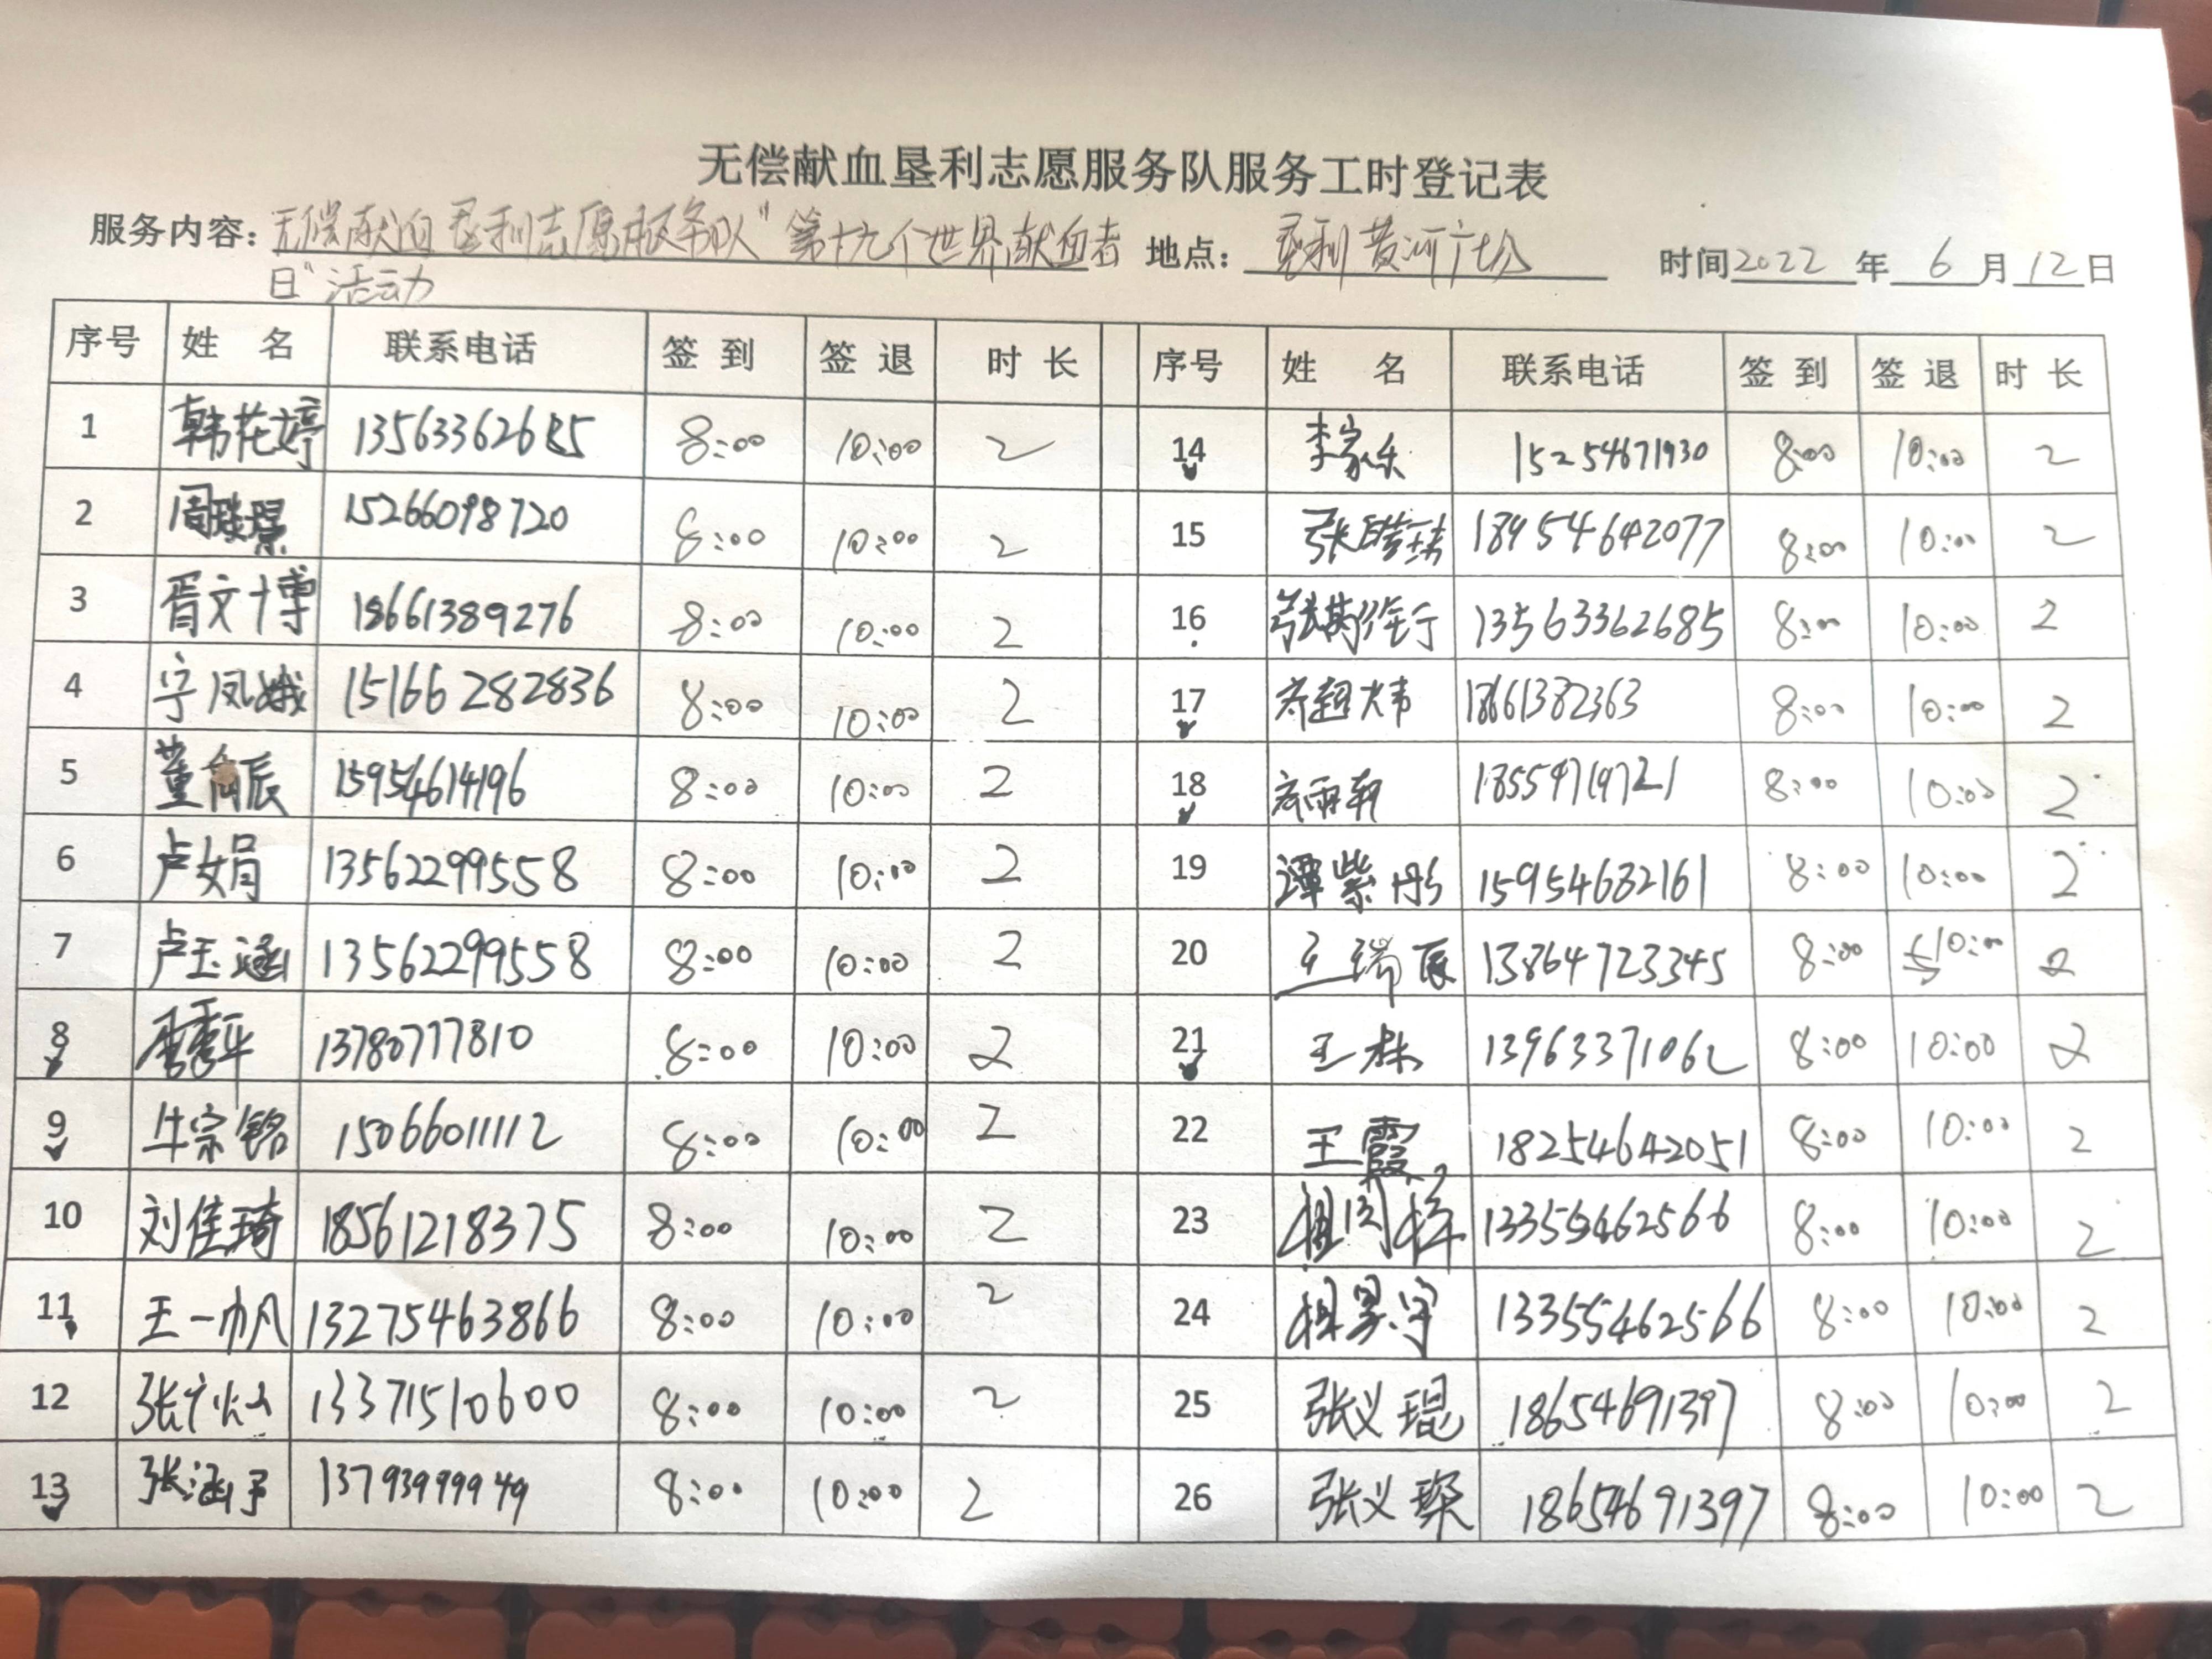 无偿献血垦利志愿服务队服务工时登记表
服务内容：无偿献血垦利志愿服务队“第十九个世界献血者 地点：垦利黄河广场 时间2022年6月12日
日”活动
序号 姓名 联系电话 签到 签退 时长 序号 姓名 联系电话 签到 签退 时长
1 韩花婷 13563362685 8:00 10:00 2 14 李家乐 15254671930 8:00 10:00 2
2 周 15266098720 8:00 10:00 2 15 张 18954642077 8:00 10:00 2
3 胥文博 18661389276 8:00 10:00 2 16 13563362685 8:00 10:00 2
4 宁凤娥 15166282836 8:00 10:00 2 17 18661382363 8:00 10:00 2
5 董 辰 15954614196 8:00 10:00 2 18 雨轩 18559719721 8:00 10:00 2
6 卢娟 13562299558 8:00 10:00 2 19 谭紫彤 15954632161 8:00 10:00 2
7 卢玉涵 13562299558 8:00 10:00 2 20 王瑞辰 13864723345 8:00 10:00 2
8 13780777810 8:00 10:00 2 21 王林 13963371062 8:00 10:00 2
9 牛宗铭 15066011112 8:00 10:00 2 22 王霞 18254642051 8:00 10:00 2
10 刘佳琦 18561218375 8:00 10:00 2 23 13355462566 8:00 10:00 2
11 王一帆 13275463866 8:00 10:00 2 24 13355462566 8:00 10:00 2
12 张广灿 13371510600 8:00 10:00 2 25 张义琨 18654691397 8:00 10:00 2
13 张涵予 13793999949 8:00 10:00 2 26 张义琛 18654691397 8:00 10:00 2